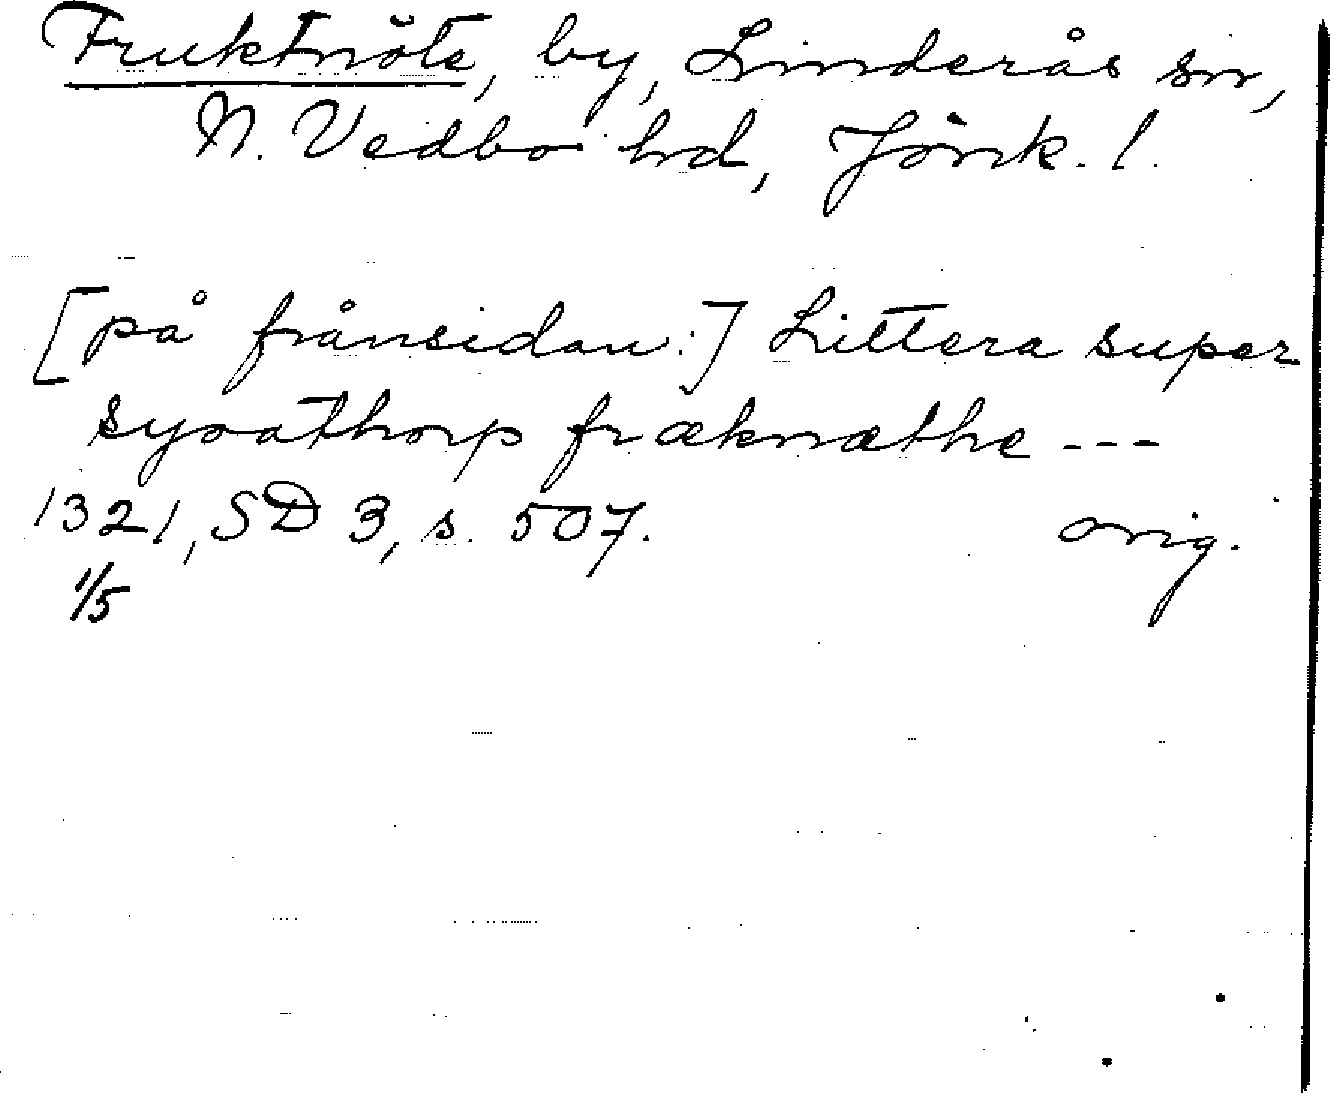 Fruktnöte, by, Linderås sn,
N. Vedbo hd, Jönk. l.
[på frånsidan:] Littera super
syoathorp fræknæthe ---
1321, SD 3, s. 507. orig.
1/5